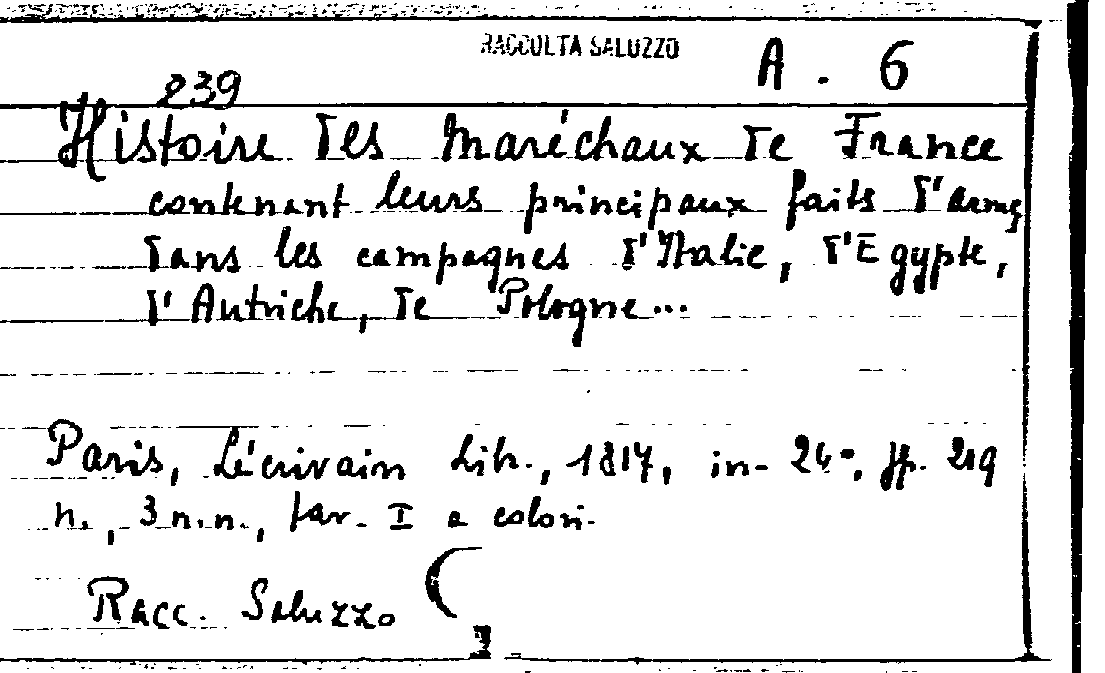 RACCOLTA SALUZZO
A. 6
239
Histoire des Maréchaux de France
contenant leurs principaux faits d'armes
dans les campagnes d'Italie, d'Egypte,
d'Autriche, de Pologne...
Paris, Lécrivain Lib., 1817, in-24°, pp. 219
n., 3 n.n., tav. I a colori.
Racc. Saluzzo